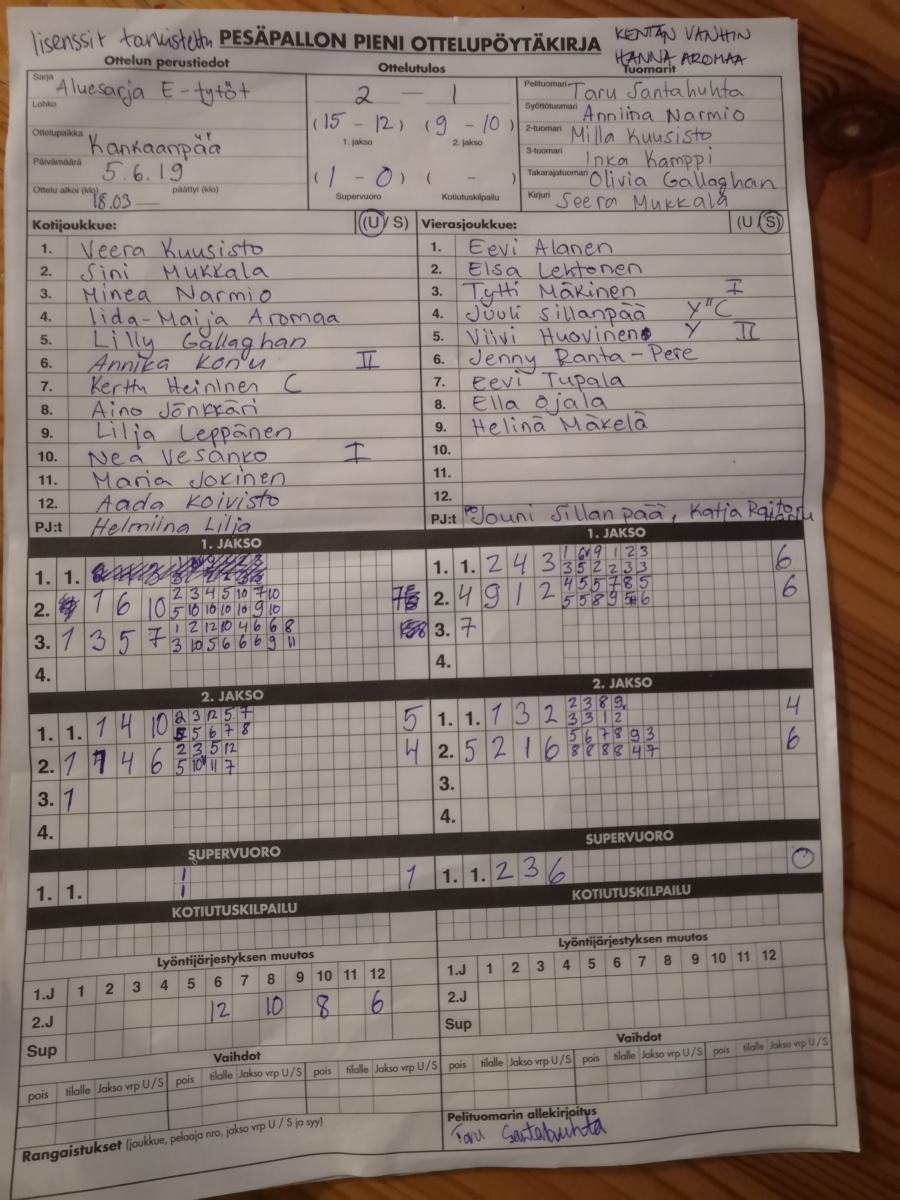 lisenssit tarkistettu PESÄPALLON PIENI OTTELUPÖYTÄKIRJA KENTÄN VANHIN
HANNA AROMAA
Ottelun perustiedot Ottelutulos Tuomarit
Sarja Aluesarja E-tytöt
Lohko
Ottelupaikka Kankaanpää
Päivämäärä 5.6.19
Ottelu alkoi (klo) 18.03 päättyi (klo)
2 - 1
(15 - 12) (9 - 10)
1. jakso 2. jakso
(1 - 0) ( - )
Supervuoro Kotiutuskilpailu
Pelituomari Taru Santahuhta
Syöttötuomari Anniina Narmio
2-tuomari Milla Kuusisto
3-tuomari Inka Kamppi
Takarajatuomari Olivia Gallaghan
Kirjuri Seera Mukkala
Kotijoukkue: (U / S)
1. Veera Kuusisto
2. Sini Mukkala
3. Minea Narmio
4. Iida-Maija Aromaa
5. Lilly Gallaghan
6. Annika Konu II
7. Kerttu Heininen C
8. Aino Jönkkäri
9. Lilja Leppänen
10. Nea Vesanko I
11. Maria Jokinen
12. Aada Koivisto
PJ:t Helmiina Lilja
Vierasjoukkue: (U / S)
1. Eevi Alanen
2. Elsa Lehtonen
3. Tytti Mäkinen I
4. Juuli Sillanpää Y"C
5. Viivi Huovinen Y II
6. Jenny Ranta-Pere
7. Eevi Tupala
8. Ella Ojala
9. Helinä Mäkelä
10.
11.
12.
PJ:t Jouni Sillanpää, Katja
1. JAKSO
1. 1.
2. 1 6 10 2 3 4 5 10 7 10
5 10 10 10 10 9 10
3. 1 3 5 7 1 2 12 10 4 6 6 8
3 10 5 6 6 6 9 11
4.
1. JAKSO
1. 1. 2 4 3 1 6 9 1 2 3 6
3 5 2 2 3 3
2. 4 9 1 2 4 5 5 7 8 5 6
5 5 8 9 6
3. 7
4.
2. JAKSO
1. 1. 1 4 10 2 3 12 5 7 5
5 5 6 7 8
2. 1 1 4 6 2 3 5 12 4
5 10 11 7
3. 1
4.
2. JAKSO
1. 1. 1 3 2 2 3 8 9 4
3 3 1 2
2. 5 2 1 6 5 6 7 8 9 3 6
8 8 8 8 4 7
3.
4.
SUPERVUORO
1. 1. 1 1
1
SUPERVUORO
1. 1. 2 3 6 0
KOTIUTUSKILPAILU
KOTIUTUSKILPAILU
Lyöntijärjestyksen muutos
1.J 1 2 3 4 5 6 7 8 9 10 11 12
2.J 12 10 8 6
Sup
Lyöntijärjestyksen muutos
1.J 1 2 3 4 5 6 7 8 9 10 11 12
2.J
Sup
Vaihdot
pois tilalle Jakso vrp U / S pois tilalle Jakso vrp U / S pois tilalle Jakso vrp U / S
Vaihdot
pois tilalle Jakso vrp U / S pois tilalle Jakso vrp U / S pois tilalle Jakso vrp U / S
Rangaistukset (joukkue, pelaaja nro, jakso vrp U / S ja syy)
Pelituomarin allekirjoitus
Taru Santahuhta